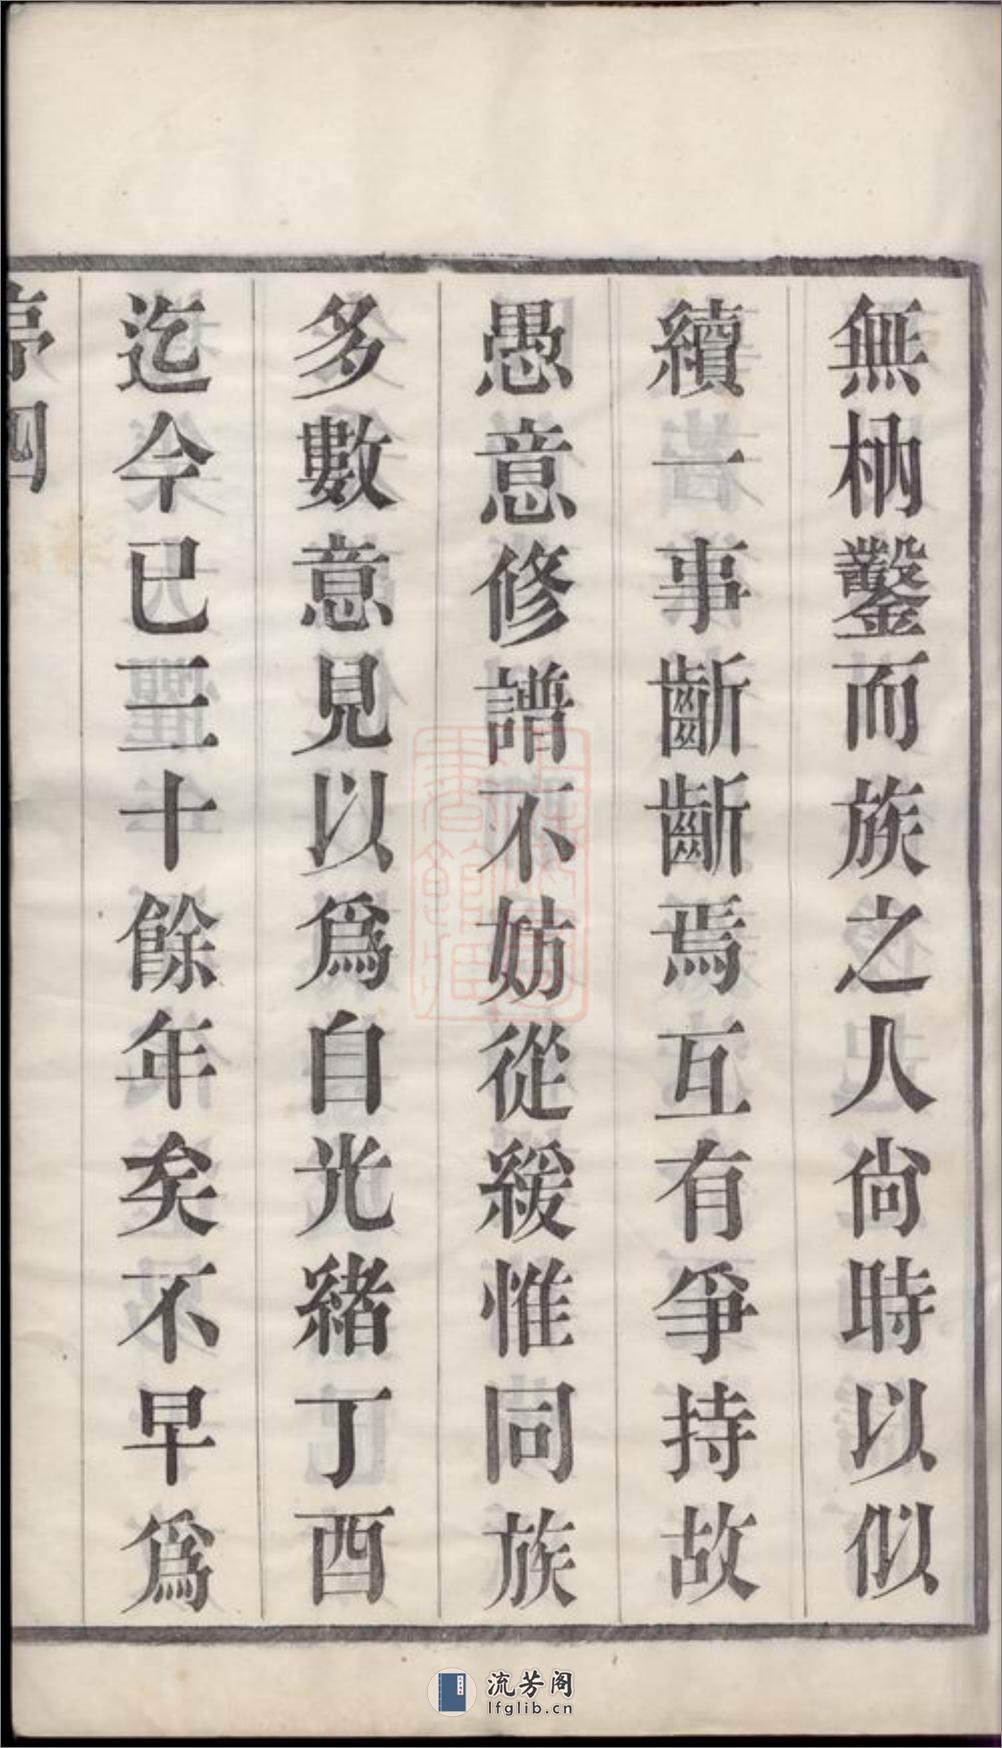 無枘鑿而族之人尙時以似
續一事齗齗焉互有爭持故
愚意修譜不妨從緩惟同族
多數意見以爲自光緒丁酉
迄今已三十餘年矣不早爲
流芳阁
lfglib.cn